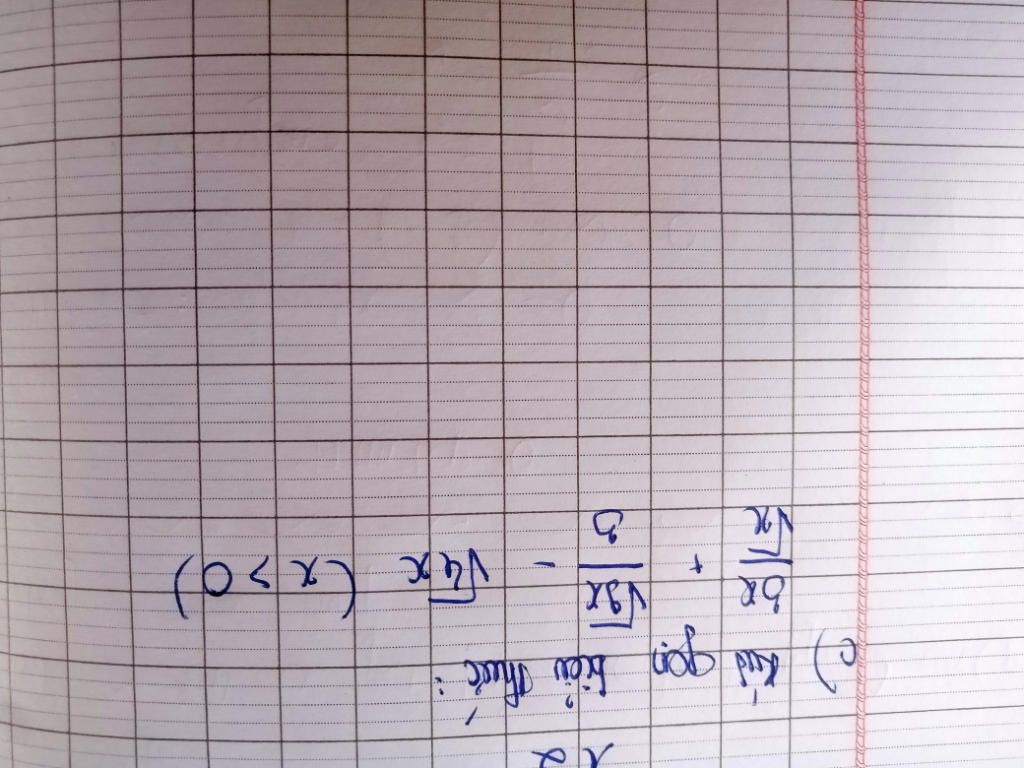 c) Rút gọn biểu thức :
3x/√x + √9x/3 - √4x (x > 0)